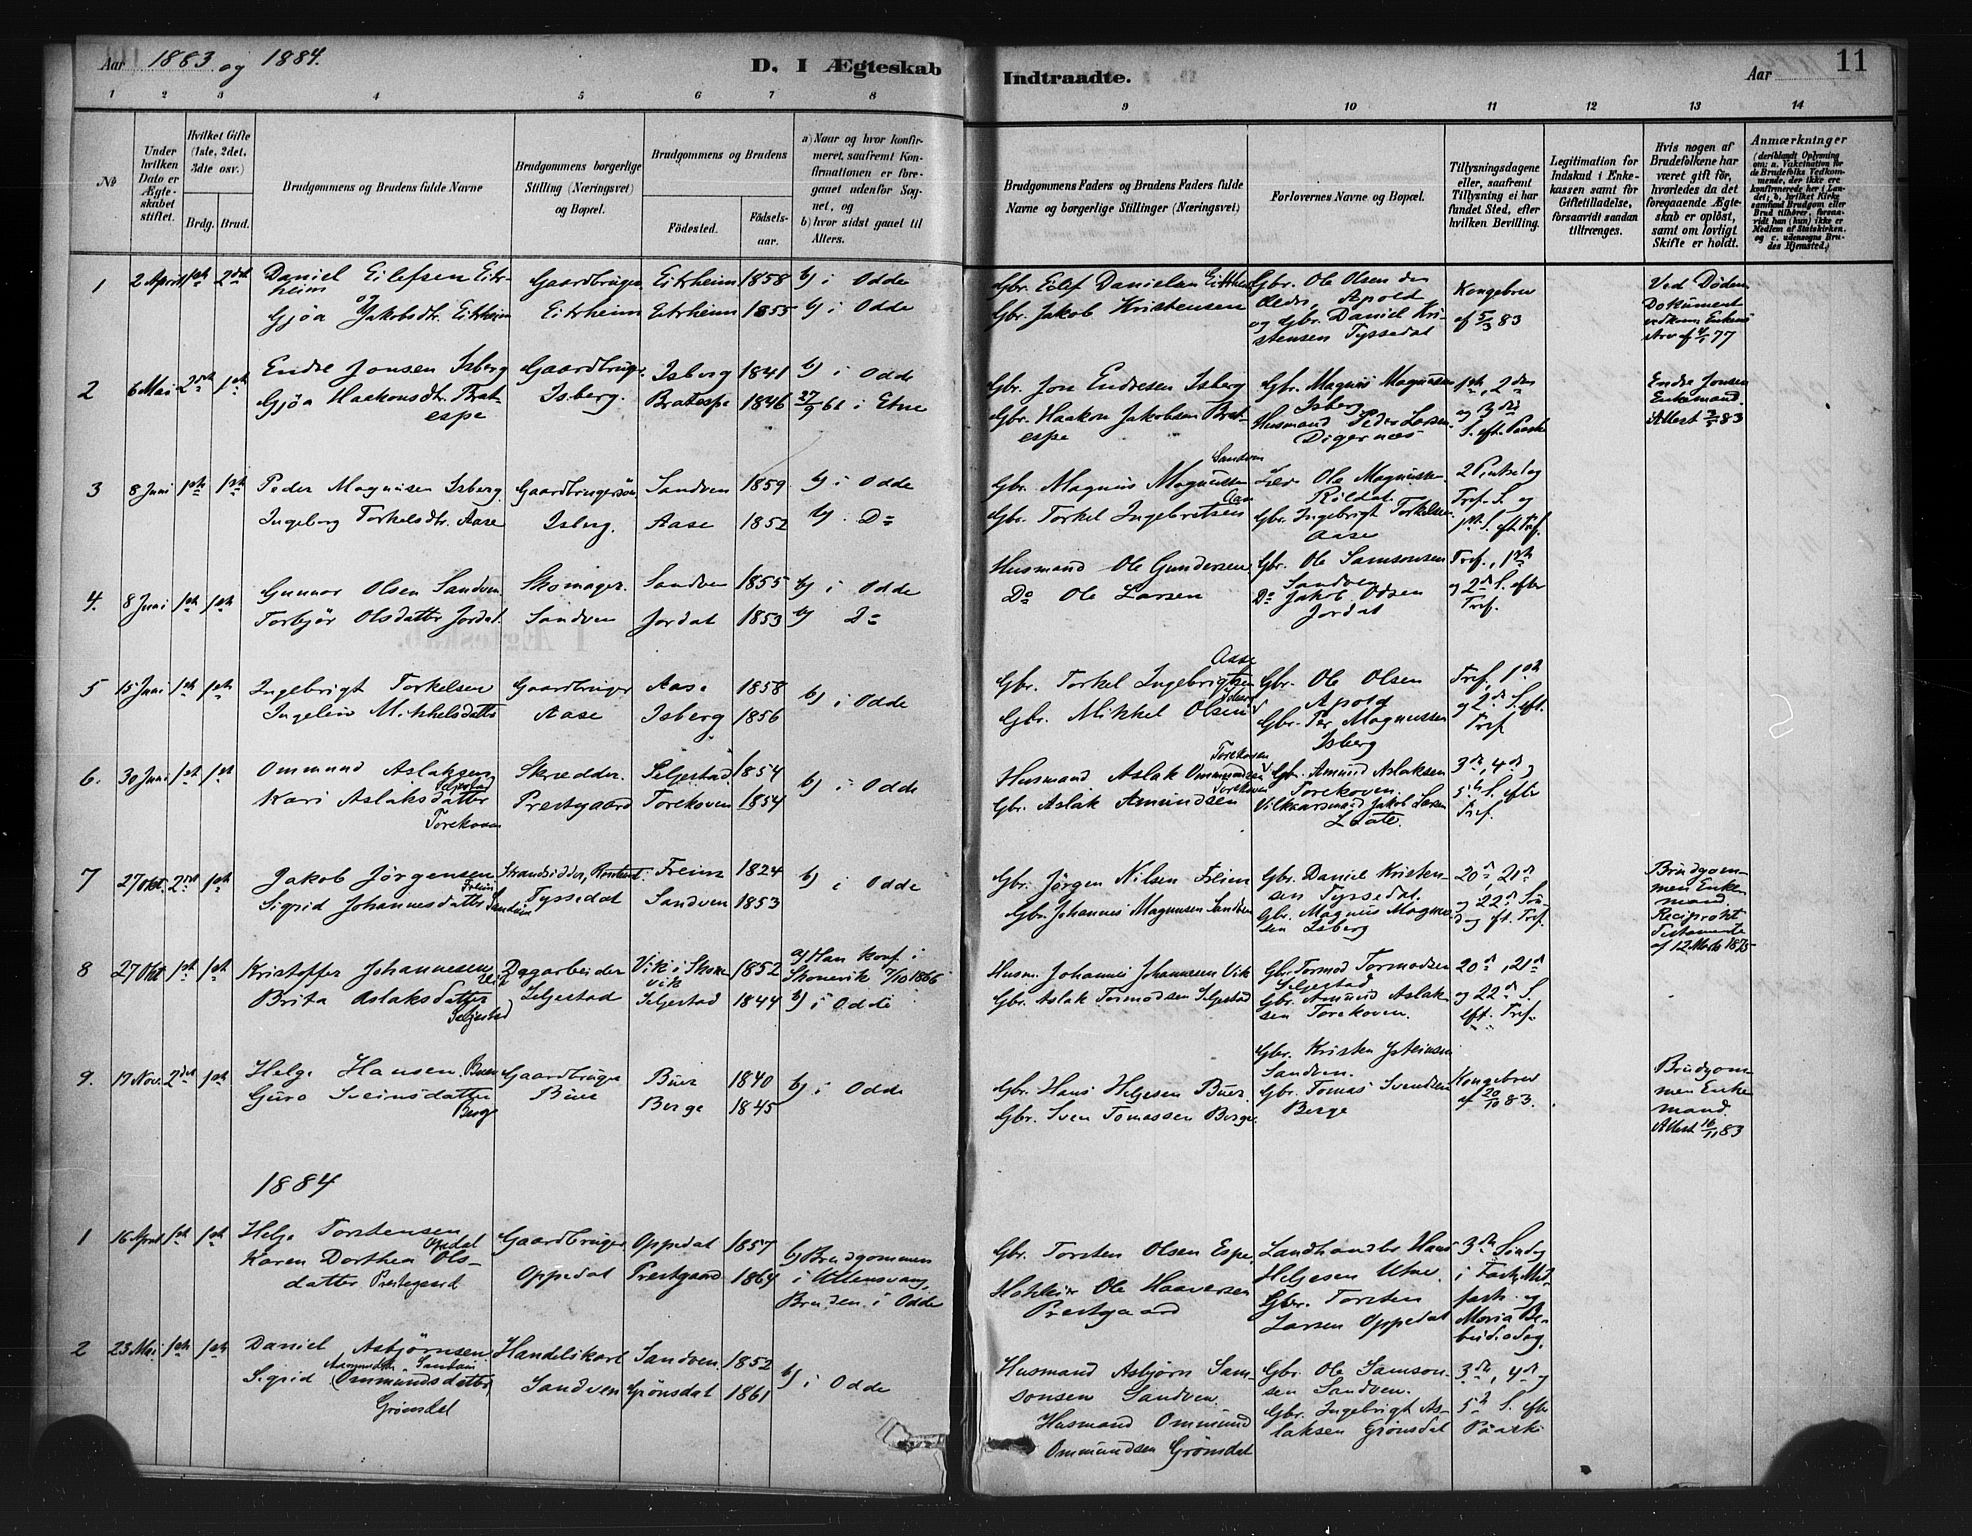 Aar 1883 og 1884.
D. I Ægteskab
Indtraadte.
Aar
11
1 2 3 4 5 6 7 8
9 10 11 12 13 14
No
Under hvilken Dato er Ægteskabet stiftet.
Hvilket Gifte (1ste, 2det, 3dte osv.)
Brdg. Brud.
Brudgommens og Brudens fulde Navne
Brudgommens borgerlige Stilling (Næringsvei) og Bopæl.
Brudgommens og Brudens
Födested. Födsels-aar.
a) Naar og hvor konfirmeret, saafremt Konfirmationen er foregaaet udenfor Sognet, og
b) hvor sidst gaaet til Alters.
Brudgommens Faders og Brudens Faders fulde Navne og borgerlige Stillinger (Næringsvei)
Forlovernes Navne og Bopæl.
Tillysningsdagene eller, saafremt Tillysning ei har fundet Sted, efter hvilken Bevilling.
Legitimation for Indskud i Enkekassen samt for Giftetilladelse, forsaavidt saadan tiltrænges.
Hvis nogen af Brudefolkene har været gift för, hvorledes da det foregaaende Ægteskab er oplöst, samt om lovligt Skifte er holdt.
Anmærkninger
(deriblandt Oplysning om: a. Vakcination for de Brudefolks Vedkommende, der ikke ere konfirmerede her i Landet, b. hvilket Kirkesamfund Brudgom eller Brud tilhörer, forsaavidt han (hun) ikke er Medlem af Statskirken, og c. udensogns Brudes Hjemsted.)
1 2 April 1ste 2det Daniel Eilefsen Eitrheim Gaardbruger Eitrheim 1858 b) i Odde
Gjøa Jakobsdtr. Eitrheim Eitrheim Eitrheim 1855 b) i Odde
Gbr. Eilef Danielsen Eitrheim
Gbr. Jakob Kristensen
Gbr. Ole Olsen den ældre, Apold
og Gbr. Daniel Kristensen Tyssedal
Kongebrev af 5/3 83
Ved Döden
Dokument vedkom. Enkens Arv af 4/5 77
2 6 Mai 2det 1ste Endre Jonsen Isberg Gaardbruger Isberg 1841 b) i Odde
Gjøa Haakonsdtr. Bratespe Isberg. Bratespe 1846 27/9 61 i Etne
Gbr. Jon Endresen Isberg
Gbr. Haakon Jakobsen Bratespe
Gbr. Magnus Magnussen Isberg
Husmand Peder Larsen Digernæs
1ste, 2den og 3die S. eft. Paaske
Endre Jonsen Enkemand.
Attest 3/5 83
3 8 Juni 1ste 1ste Peder Magnusen Isberg Gaardbrugersön Sandven 1859 b) i Odde
Ingeborg Torkelsdtr. Aase Isberg. Aase 1852 b) Do
Gbr. Magnus Magnussen Sandven
Gbr. Torkel Ingebretsen Aase
Lær. Ole Magnussen Röldal.
Gbr. Ingebrigt Torkelsen Aase
2 Pintsedag Tref. S. og 1ste S. eft. Tref.
4. 8 Juni 1ste 1ste Gunnar Olsen Sandven Skomager. Sandven 1855 b) i Odde
Torbjör Olsdatter Jordal Sandven Jordal 1853 b) Do
Husmand Ole Gundersen
Do Ole Larsen
Gbr. Ole Samsonsen Sandven
Do Jakob Odsen Jordal
Tref., 1ste og 2den S. efter Tref.
5 15 Juni 1ste 1ste Ingebrigt Torkelsen Gaardbruger Aase 1858 b) i Odde
Ingelin Mikkelsdatter Aase Isberg 1856
Gbr. Torkel Ingebrigtsen Aase
Gbr. Mikkel Olsen
Gbr. Ole Olsen Apold
Gbr. Per Magnussen Isberg
Tref., 1ste og 2den S. eft. Tref
6. 30 Juni 1ste 1ste Ommund Aslaksen Seljestad Skrædder. Seljestad 1854 b) i Odde
Kari Aslaksdatter Torekoven Prestgaard Torekoven 1854
Husmand Aslak Ommundsen Torekoven
Gbr. Aslak Amundsen Torekoven
Gbr. Amund Aslaksen Torekoven.
Vilkaarsmand Jakob Larsen Laate.
3die, 4de og 5te S. efter Tref.
7 27 Okt. 2det 1ste Jakob Jörgensen Freim Strandsidder, Freim 1824 b) i Odde
Sigrid Johannesdatter Sandven Tyssedal Sandven 1853
Gbr. Jörgen Nilsen Freim
Gbr. Johannes Magnusen Sandven
Gbr. Daniel Kristensen Tyssedal.
Gbr. Magnus Magnussen Isberg
20de, 21de og 22de Söndag eft. Tref.
Brudgommen Enkemand.
Reciprokt Testamente af 12 Marts 1875
8 27 Okt 1ste 1ste Kristoffer Johannesen Dagarbeider Vik i Skonevik 1852 a) Han konf. i Skonevik 7/10 1866
Brita Aslaksdatter Seljestad Seljestad Seljestad 1844 b) i Odde
Husm. Johannes Johannesen Vik
Gbr. Aslak Tormodsen Seljestad
Gbr. Tormod Tormodsen Seljestad
Gbr. Amund Aslaksen Torekoven.
20de, 21de og 22de S. eft. Tref.
9. 17 Nov. 2det 1ste Helge Hansen Buer Gaardbruger Buer 1840 b) i Odde
Guro Sveinsdatter Berge Buer Berge 1845
Gbr. Hans Helgesen Buer.
Gbr. Sven Tomassen Berge.
Gbr. Kristen Josteinsen Sandven.
Gbr. Tomas Svendsen Berge
Kongebrev af 20/10 83.
Brudgommen Enkemand.
Attest 16/11 83
1884
1 16 April 1ste 1ste Helge Torstensen Opedal Gaardbruger Oppedal 1857 b) Brudgommen i Ullensvang,
Karen Dorthea Olsdatter Prestegaard Oppedal Prestgaard 1864 Bruden i Odde
Gbr. Torsten Olsen Espe,
Ole Haaversen Prestgaard
Landhandler Hans Helgesen Utne.
Gbr. Torsten Larsen Oppedal
3die Söndag i Faste, Midfaste og Maria Bebudelsesdag.
2 23 Mai 1ste 1ste Daniel Asbjörnsen Handelskarl Sandven 1852 b) i Odde
Sigrid Ommundsdatter Grönsdal Sandven Grönsdal 1861
Husmand Asbjørn Samsonsen Sandven.
Husmand Ommund Ommundsen Grönsdal
Gbr. Ole Samsonsen Sandven.
Gbr. Ingebrigt Aslaksen Grönsdal
3die, 4de og 5te S. efter Paaske